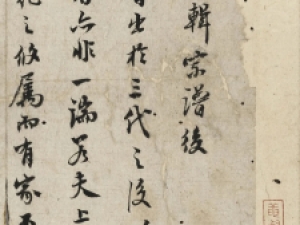 輯宗譜後
出於三代之後
亦非一端若夫上
之攸屬而有家